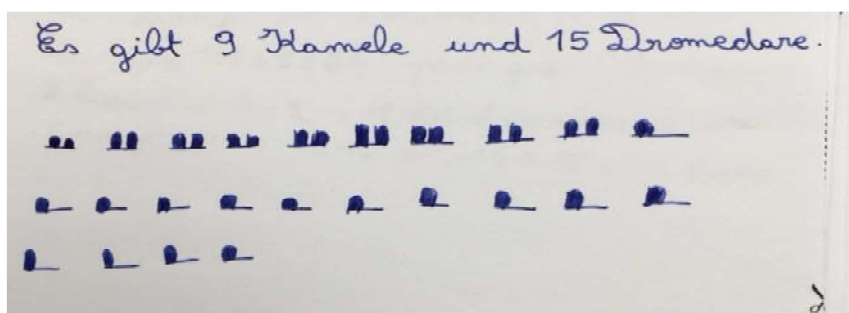 Es gibt 9 Kamele und 15 Dromedare.